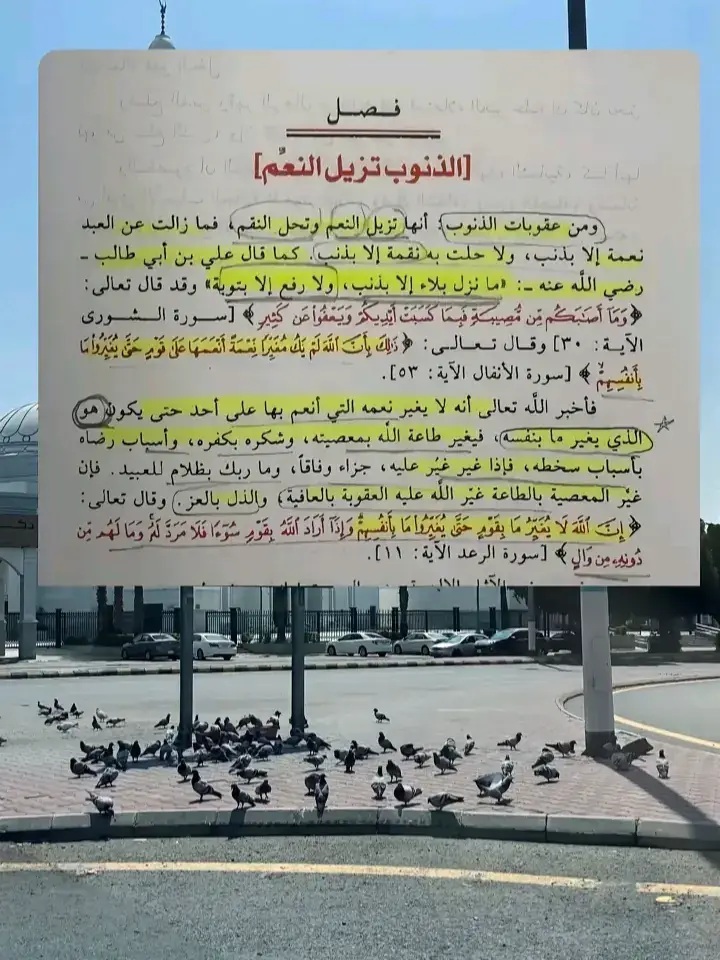 فصل
[الذنوب تزيل النعم]
ومن عقوبات الذنوب: أنها تزيل النعم وتحل النقم، فما زالت عن العبد
نعمة إلا بذنب، ولا حلت به نقمة إلا بذنب. كما قال علي بن أبي طالب ـ
رضي اللَّه عنه ـ: «ما نزل بلاء إلا بذنب، ولا رفع إلا بتوبة» وقد قال تعالى:
﴿وَمَا أَصَٰبَكُم مِّن مُّصِيبَةٍ فَبِمَا كَسَبَتْ أَيْدِيكُمْ وَيَعْفُوا۟ عَن كَثِيرٍ﴾ [سورة الشورى
الآية: ٣٠] وقال تعالى: ﴿ذَٰلِكَ بِأَنَّ ٱللَّهَ لَمْ يَكُ مُغَيِّرًا نِّعْمَةً أَنْعَمَهَا عَلَىٰ قَوْمٍ حَتَّىٰ يُغَيِّرُوا۟ مَا
بِأَنفُسِهِمْ﴾ [سورة الأنفال الآية: ٥٣].
فأخبر اللَّه تعالى أنه لا يغير نعمه التي أنعم بها على أحد حتى يكون هو
الذي يغير ما بنفسه، فيغير طاعة اللَّه بمعصيته، وشكره بكفره، وأسباب رضاه
بأسباب سخطه، فإذا غير غيُر عليه، جزاء وفاقاً، وما ربك بظلام للعبيد. فإن
غيّر المعصية بالطاعة غيّر اللَّه عليه العقوبة بالعافية، والذل بالعز. وقال تعالى:
﴿إِنَّ ٱللَّهَ لَا يُغَيِّرُ مَا بِقَوْمٍ حَتَّىٰ يُغَيِّرُوا۟ مَا بِأَنفُسِهِمْ وَإِذَآ أَرَادَ ٱللَّهُ بِقَوْمٍ سُوٓءًا فَلَا مَرَدَّ لَهُۥ وَمَا لَهُم مِّن
دُونِهِۦ مِن وَالٍ﴾ [سورة الرعد الآية: ١١].